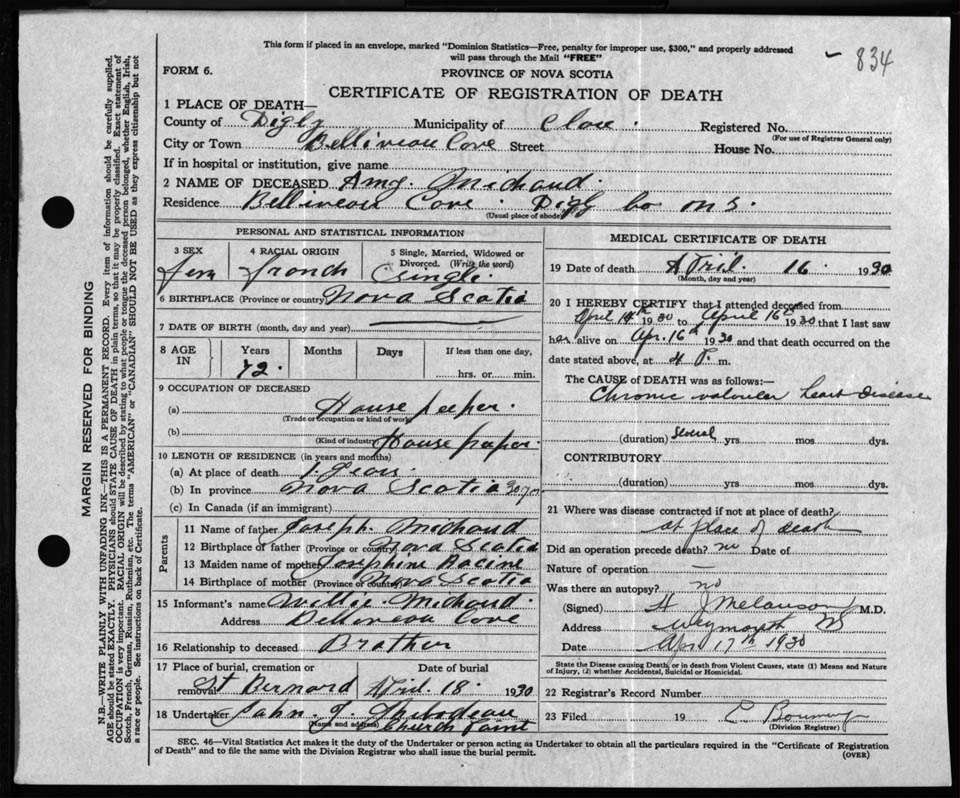 This form if placed in an envelope, marked "Dominion Statistics—Free, penalty for improper use, $300," and properly addressed
will pass through the Mail "FREE"
834
FORM 6.
PROVINCE OF NOVA SCOTIA
CERTIFICATE OF REGISTRATION OF DEATH
1 PLACE OF DEATH—
County of Digby Municipality of Clare Registered No.
(For use of Registrar General only)
City or Town Belliveau Cove Street House No.
If in hospital or institution, give name
2 NAME OF DECEASED Amy. Michaud.
Residence Belliveau Cove. Digby Co N S.
(Usual place of abode)
PERSONAL AND STATISTICAL INFORMATION
3 SEX 4 RACIAL ORIGIN 5 Single, Married, Widowed or Divorced. (Write the word)
Fem French Single.
6 BIRTHPLACE (Province or country) Nova Scotia
7 DATE OF BIRTH (month, day and year)
8 AGE IN Years Months Days If less than one day,
72. hrs. or min.
9 OCCUPATION OF DECEASED
(a) House keeper.
(Trade or occupation or kind of work)
(b) House keeper.
(Kind of industry)
10 LENGTH OF RESIDENCE (in years and months)
(a) At place of death 1 years.
(b) In province Nova Scotia
(c) In Canada (if an immigrant)
Parents
11 Name of father Joseph Michaud
12 Birthplace of father (Province or country) Nova Scotia
13 Maiden name of mother Josephine Racine
14 Birthplace of mother (Province or country) Nova Scotia
15 Informant's name Willie Michaud
Address Belliveau Cove
16 Relationship to deceased Brother
17 Place of burial, cremation or removal Date of burial
St Bernard April 18. 1930
18 Undertaker John. J. Thibodeau
(Name and address) Church Point
MEDICAL CERTIFICATE OF DEATH
19 Date of death April 16. 1930
(Month, day and year)
20 I HEREBY CERTIFY that I attended deceased from
April 14th 1930 to April 16th 1930 that I last saw
her alive on Apr. 16th 1930 and that death occurred on the
date stated above, at 4 P. m.
The CAUSE of DEATH was as follows:—
Chronic valvular heart disease
(duration) Several yrs. mos. dys.
CONTRIBUTORY
(duration) yrs. mos. dys.
21 Where was disease contracted if not at place of death?
at place of death
Did an operation precede death? no Date of
Nature of operation —
Was there an autopsy? no
(Signed) H J Melanson M.D.
Address Weymouth NS
Date Apr 17th 1930
State the Disease causing Death, or in death from Violent Causes, state (1) Means and Nature
of Injury, (2) whether Accidental, Suicidal or Homicidal.
22 Registrar's Record Number
23 Filed 19
(Division Registrar)
SEC. 46—Vital Statistics Act makes it the duty of the Undertaker or person acting as Undertaker to obtain all the particulars required in the "Certificate of Registration
of Death" and to file the same with the Division Registrar who shall issue the burial permit.
(OVER)
MARGIN RESERVED FOR BINDING
N.B.—WRITE PLAINLY WITH UNFADING INK—THIS IS A PERMANENT RECORD. Every item of information should be carefully supplied.
AGE should be stated EXACTLY. PHYSICIANS should STATE CAUSE OF DEATH in plain terms, so that it may be properly classified. Exact statement of
OCCUPATION is very important. RACIAL ORIGIN will be described by stating to what people or tongue the deceased person belonged, whether English, Irish,
Scotch, French, German, Russian, Ruthenian, etc. The terms "AMERICAN" or "CANADIAN" SHOULD NOT BE USED as they express citizenship but not
a race or people. See instructions on back of Certificate.